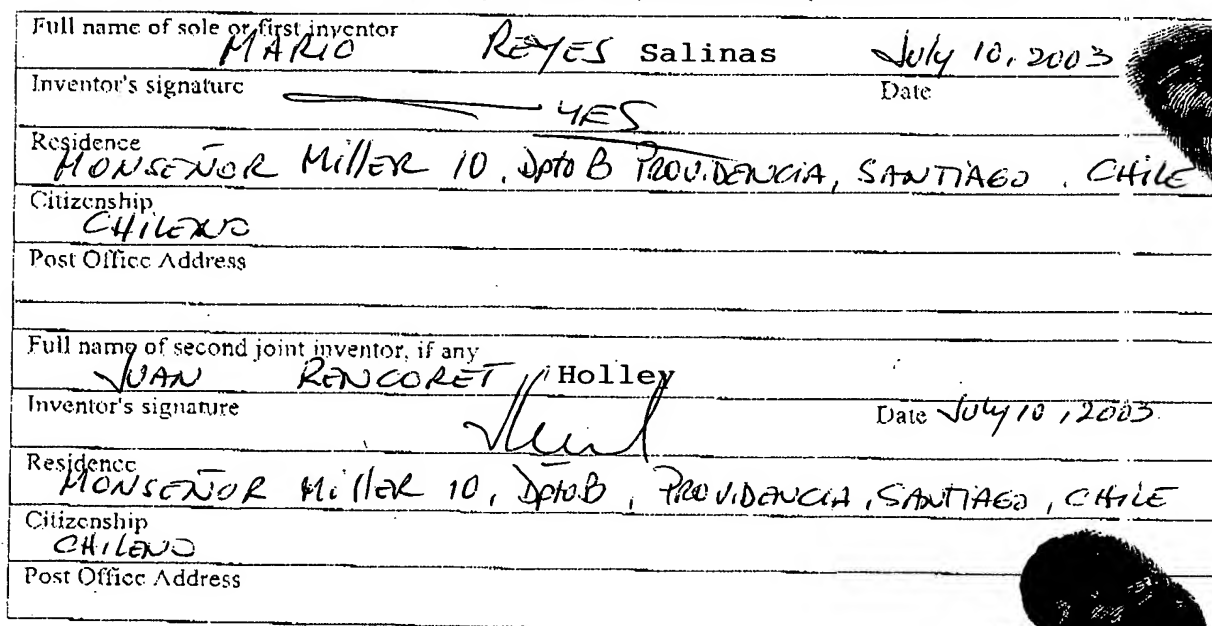 Full name of sole or first inventor
MARIO REYES Salinas July 10, 2003
Inventor's signature Date
YES
Residence
MONSEÑOR MillER 10, Dpto B PROVIDENCIA, SANTIAGO, CHILE
Citizenship
CHILENO
Post Office Address
Full name of second joint inventor, if any
JUAN RENCORET Holley
Inventor's signature Date July 10, 2003
Residence
MONSEÑOR MillER 10, Dpto B, PROVIDENCIA, SANTIAGO, CHILE
Citizenship
CHILENO
Post Office Address